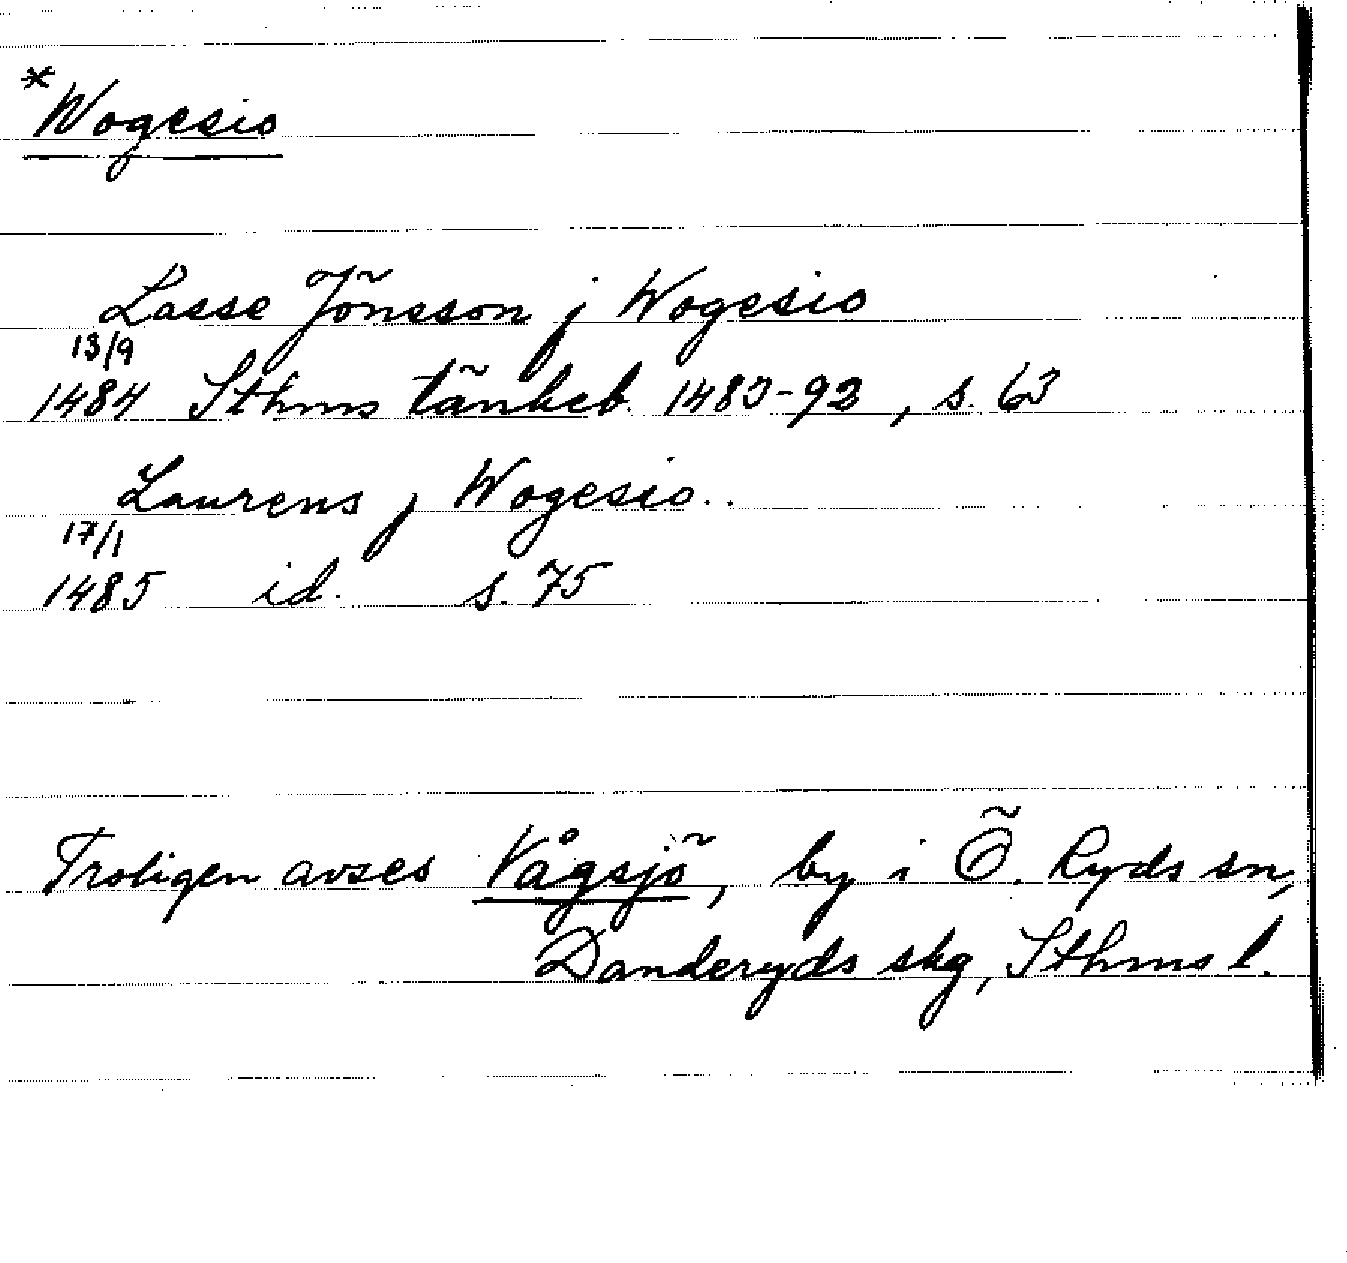 *Wogesio
Lasse Jönsson j Wogesio
13/9
1484 Sthms tänkeb. 1483-92, s. 63
Laurens j Wogesio..
17/1
1485 id. s. 75
Troligen avses Vågsjö, by i Ö. Ryds sn,
Danderyds skg, Sthms l.